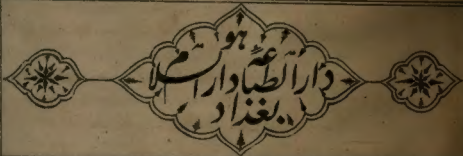 هو
دار الطباعة دار السلام
بغداد